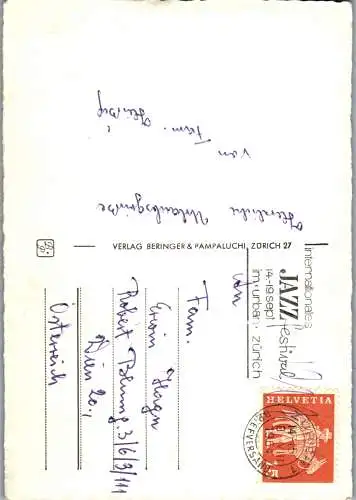 Herzliche Urlaubsgrüße
von Fam.
VERLAG BERINGER & PAMPALUCHI, ZÜRICH 27
internationales
JAZZ
festival
14-19 sept
im urban zürich
HELVETIA
BRIEFVERSAND
An
Fam.
Erwin Hagn
Robert Blumg. 3/6/3/111
Wien 20.,
Österreich